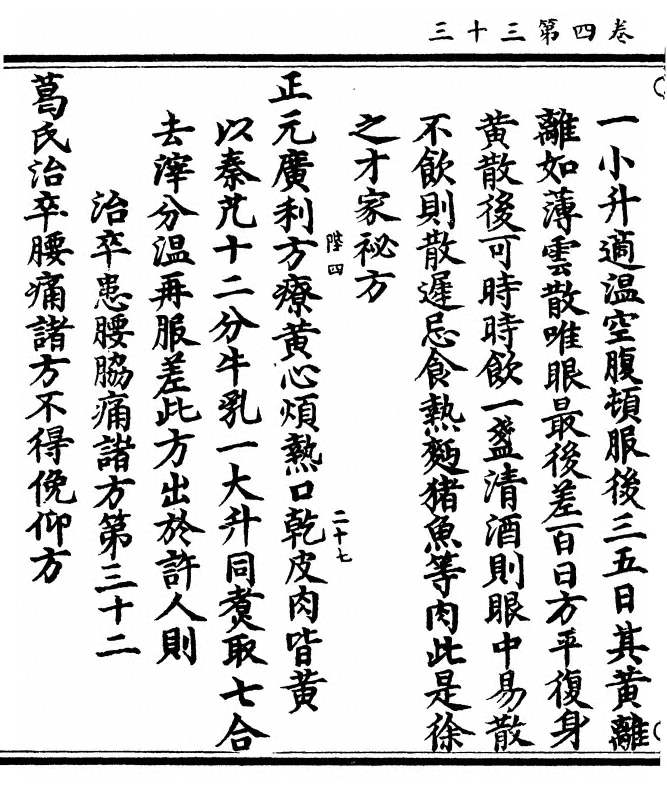 卷四第三十三
一小升適温空腹頓服後三五日其黄離
離如薄雲散唯眼最後差百日方平復身
黄散後可時時飲一盞清酒則眼中易散
不飲則散遲忌食熱麪猪魚等肉此是徐
之才家祕方
陸四
二十七
正元廣利方療黄心煩熱口乾皮肉皆黄
以秦艽十二分牛乳一大升同煑取七合
去滓分温再服差此方出於許人則
治卒患腰脇痛諸方第三十二
葛氏治卒腰痛諸方不得俛仰方